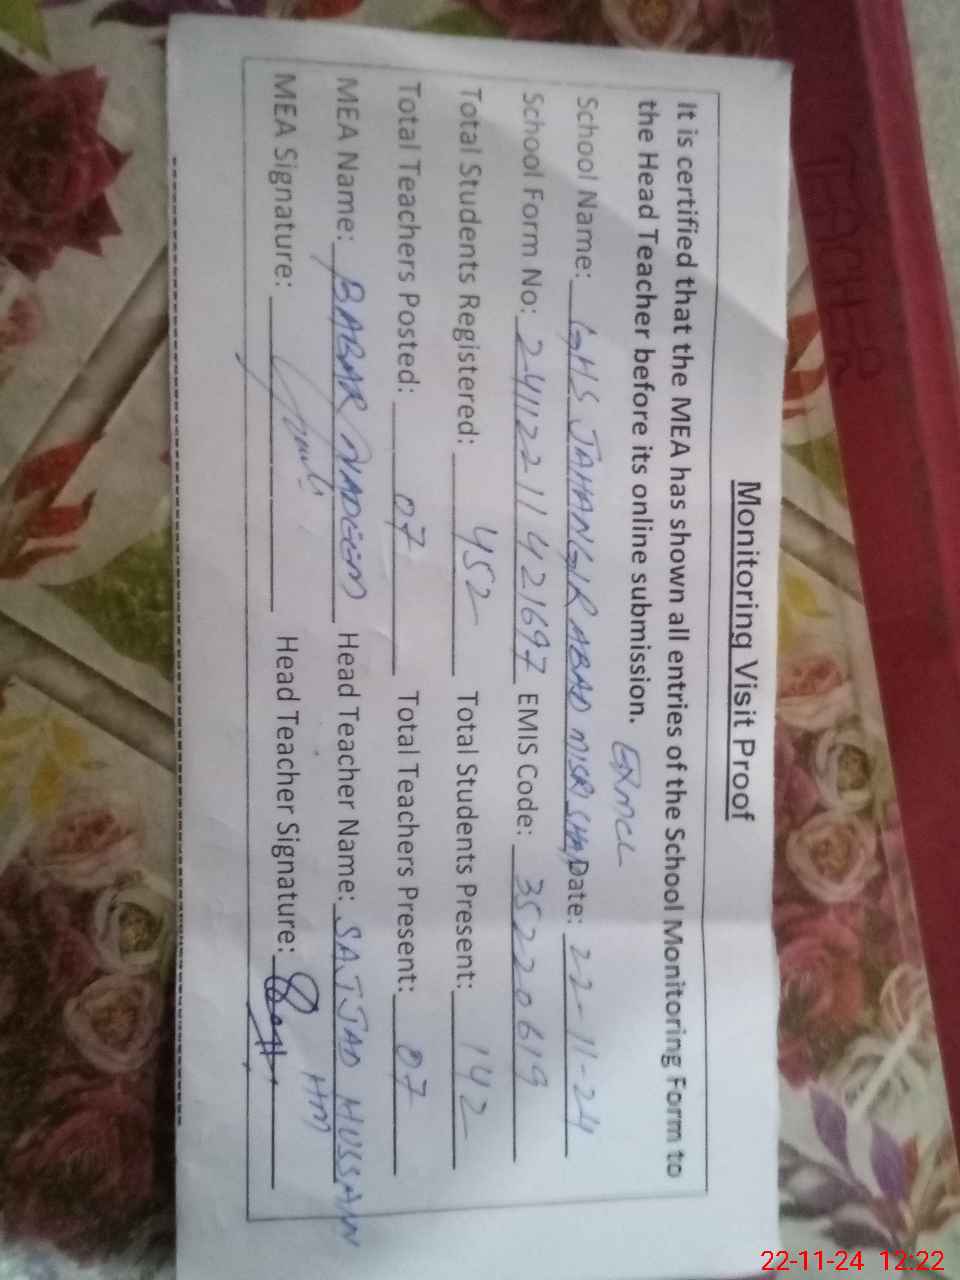 Monitoring Visit Proof
It is certified that the MEA has shown all entries of the School Monitoring Form to
the Head Teacher before its online submission.
School Name: GHS JAHANGIRABAD MISRI SHAH Date: 22-11-24
School Form No: 24112211421697 EMIS Code: 35220619
Total Students Registered: 452 Total Students Present: 142
Total Teachers Posted: 07 Total Teachers Present: 07
MEA Name: BABAR NADEEM Head Teacher Name: SAJJAD HUSSAIN
HM
MEA Signature: Head Teacher Signature:
TEACHER
22-11-24 12:22